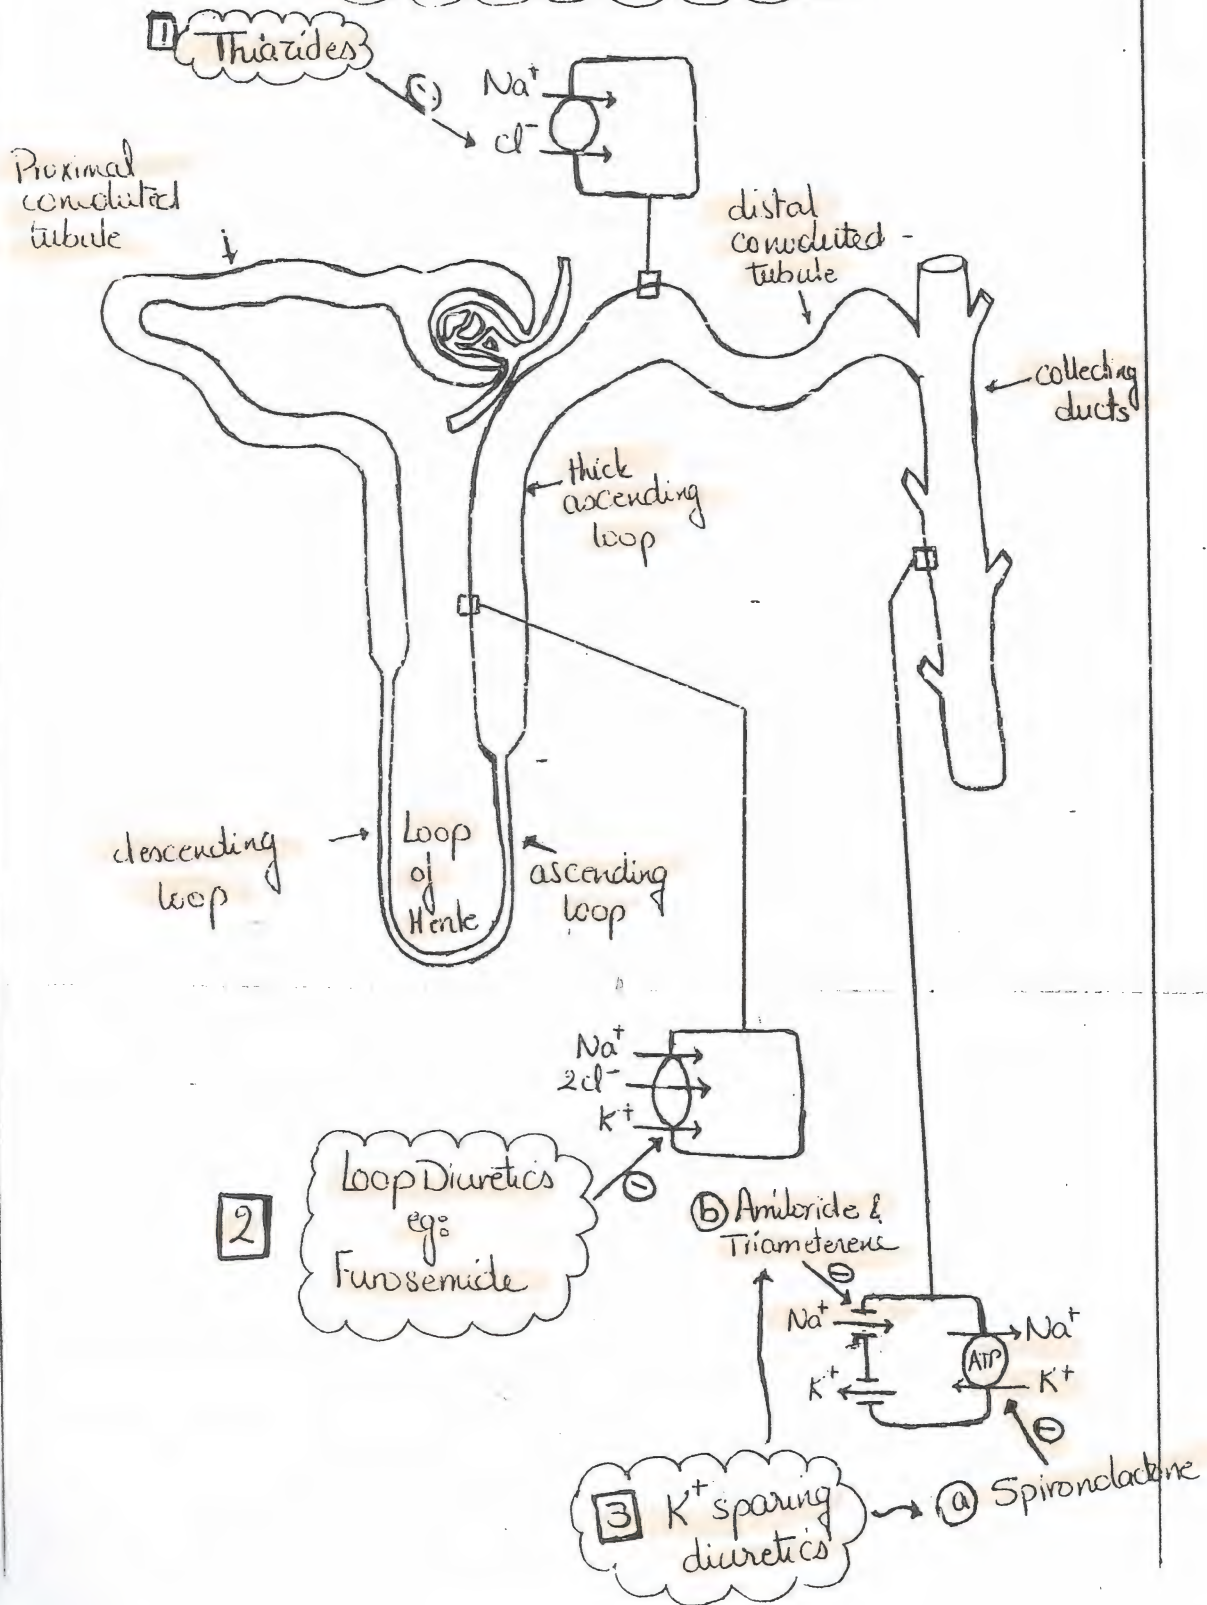 1 Thiazides
Na⁺
Cl⁻
Proximal
convoluted
tubule
distal
convoluted
tubule
collecting
ducts
thick
ascending
loop
descending
loop
Loop
of
Henle
ascending
loop
Na⁺
2Cl⁻
K⁺
2
Loop Diuretics
eg:
Furosemide
b Amiloride &
Triameterene
Na⁺
K⁺
Na⁺
ATP
K⁺
3 K⁺ sparing
diuretics
a Spironolactone